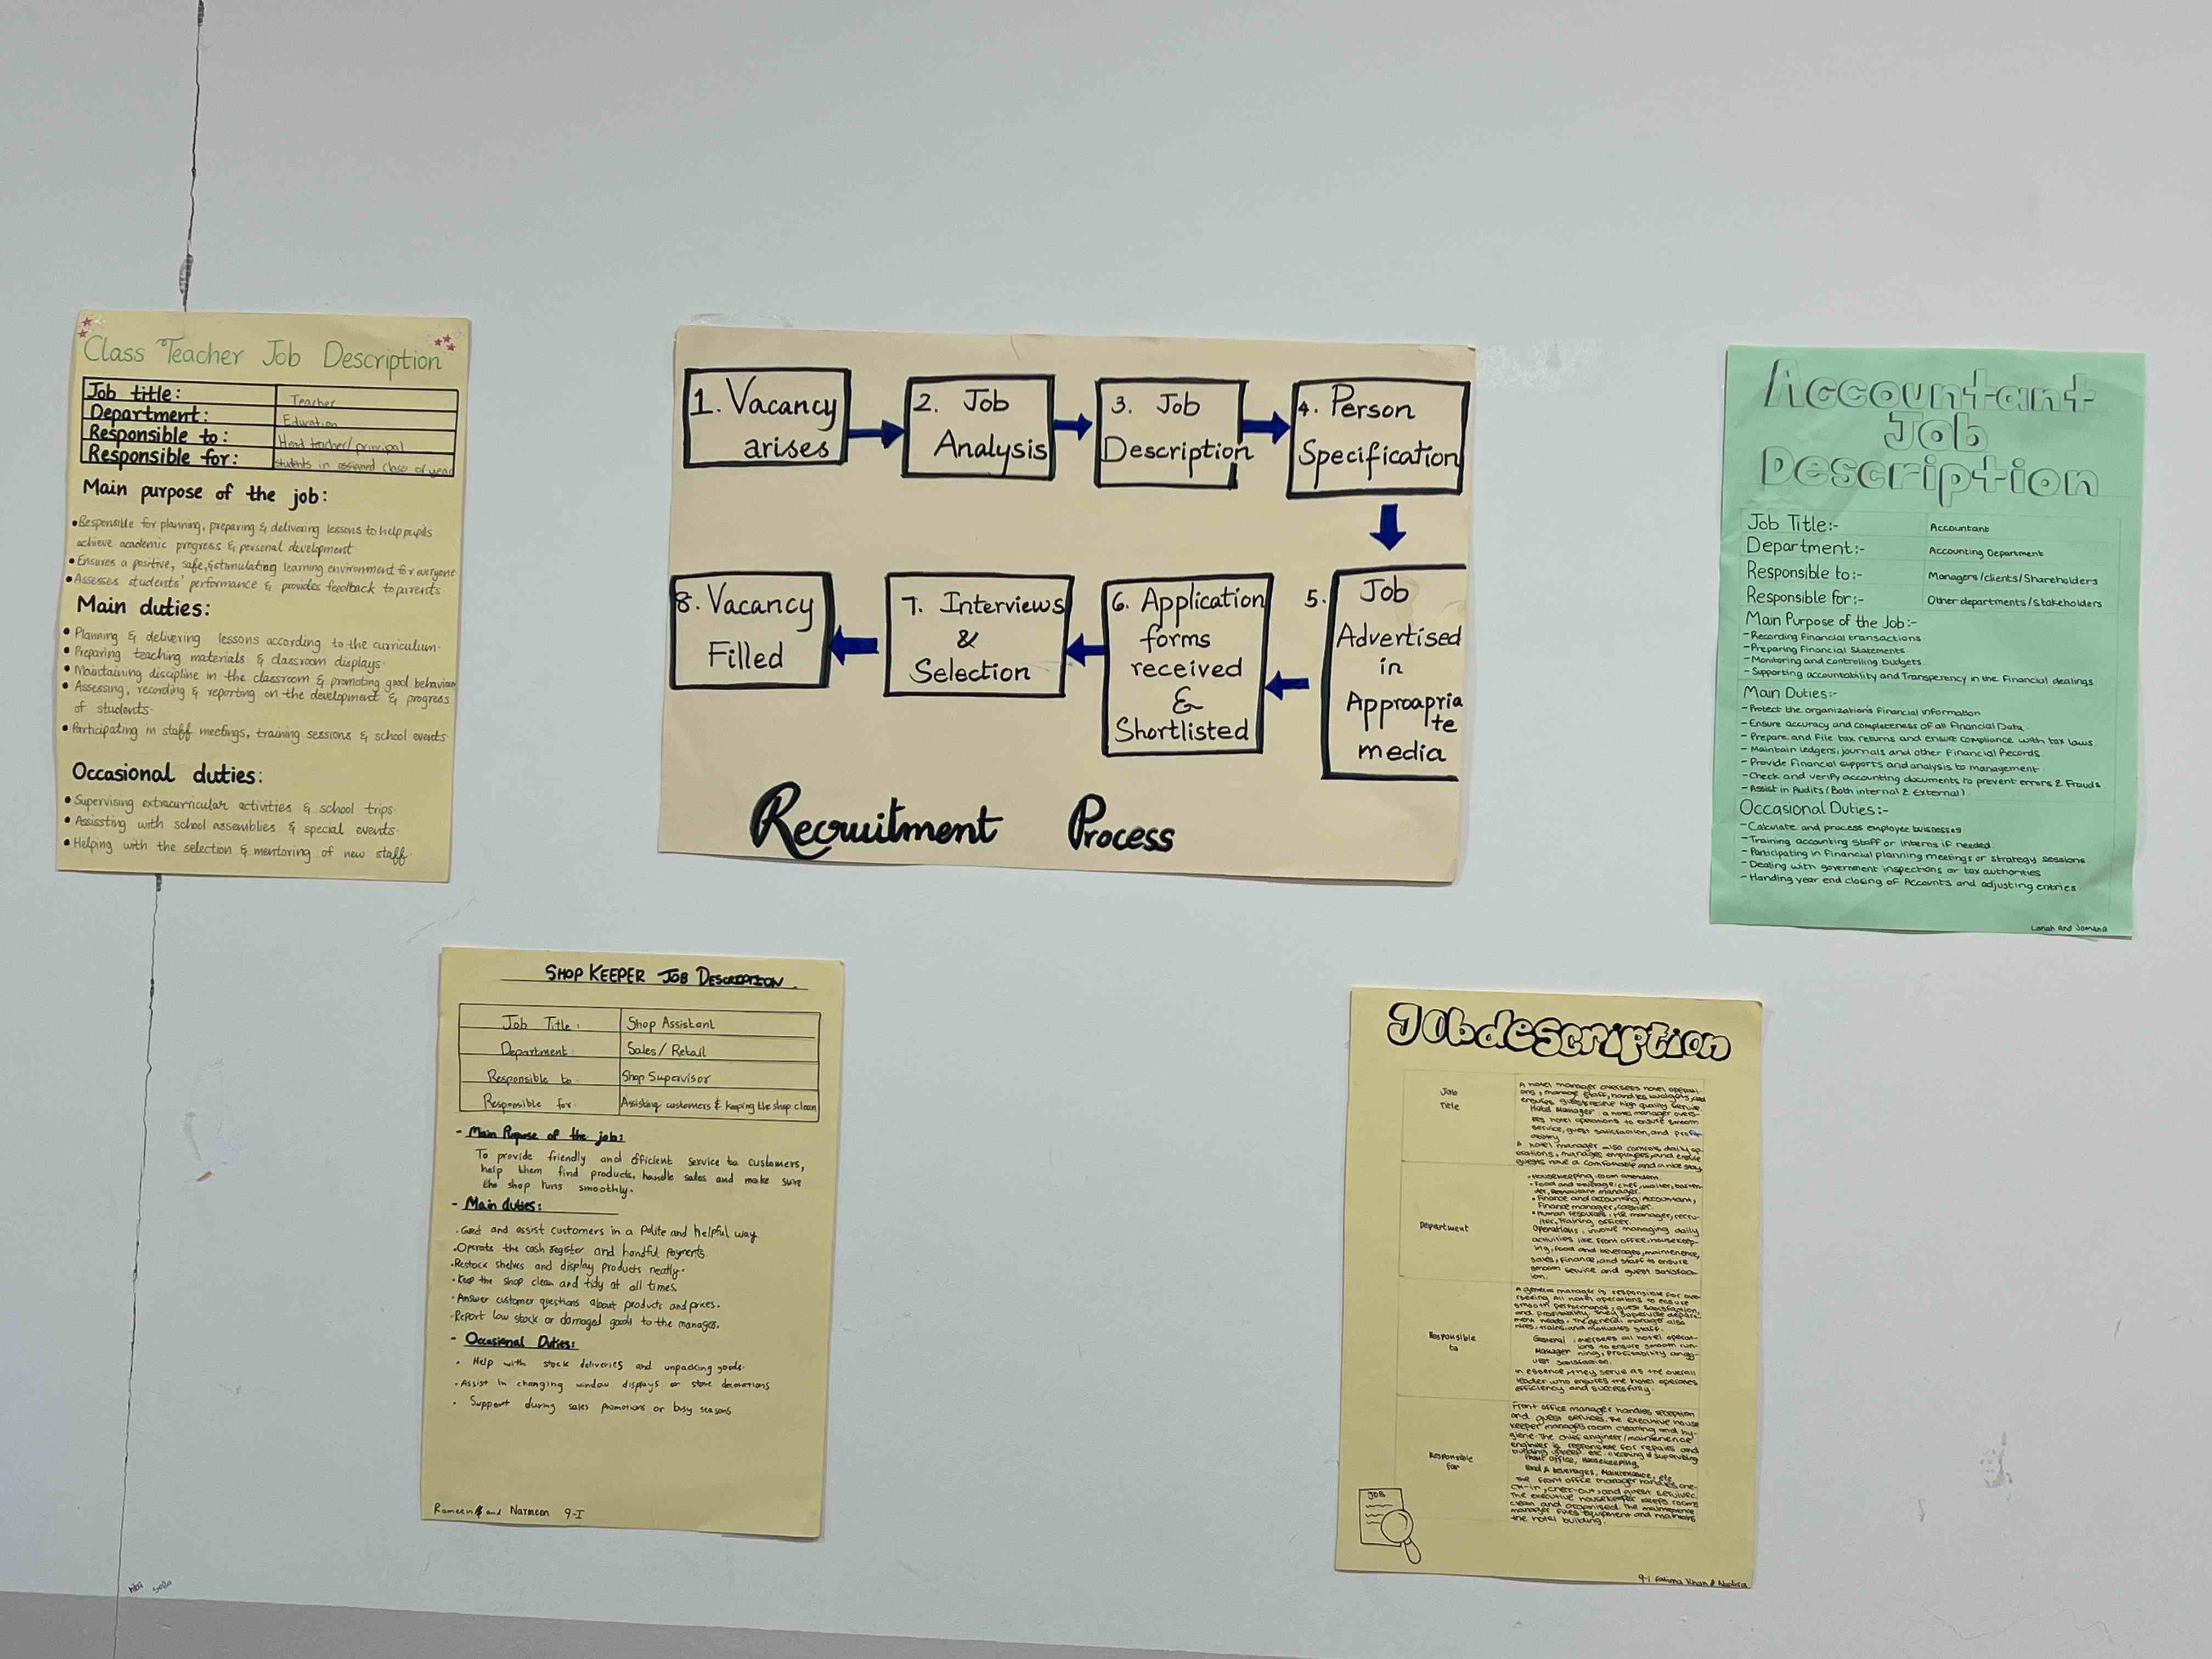 Class Teacher Job Description
Job title: Teacher
Department: Education
Responsible to: Head teacher/principal
Responsible for: students in assigned class or year
Main purpose of the job:
• Responsible for planning, preparing & delivering lessons to help pupils
achieve academic progress & personal development
• Ensures a positive, safe, & stimulating learning environment for everyone
• Assesses students' performance & provides feedback to parents.
Main duties:
• Planning & delivering lessons according to the curriculum.
• Preparing teaching materials & classroom displays.
• Maintaining discipline in the classroom & promoting good behaviour
• Assessing, recording & reporting on the development & progress
of students.
• Participating in staff meetings, training sessions & school events.
Occasional duties:
• Supervising extracurricular activities & school trips.
• Assissting with school assemblies & special events.
• Helping with the selection & mentoring of new staff.
1. Vacancy
arises
2. Job
Analysis
3. Job
Description
4. Person
Specification
5. Job
Advertised
in
Approapria
te
media
6. Application
forms
received
&
Shortlisted
7. Interviews
&
Selection
8. Vacancy
Filled
Recruitment Process
Accountant
Job
Description
Job Title:- Accountant
Department:- Accounting Department
Responsible to:- Managers/clients/Shareholders
Responsible for:- Other departments/Stakeholders
Main Purpose of the Job:-
- Recording Financial transactions
- Preparing Financial Statements
- Monitoring and controlling budgets
- Supporting accountability and Transparency in the Financial dealings.
Main Duties:-
- Protect the organization's Financial information
- Ensure accuracy and completeness of all Financial Data.
- Prepare and File tax returns and ensure compliance with tax laws.
- Maintain ledgers, journals and other Financial Records.
- Provide Financial supports and analysis to management.
- Check and verify accounting documents to prevent errors & Frauds
- Assist in Audits (Both internal & External).
Occasional Duties:-
- Calculate and process employee businesses
- Training accounting Staff or Interns if needed.
- Participating in Financial planning meetings or strategy sessions
- Dealing with government inspections or tax authorities
- Handing year end closing of Accounts and adjusting entries.
Lanah and Jomana
SHOP KEEPER JOB DESCRIPTION.
Job Title: Shop Assistant
Department: Sales/Retail
Responsible to: Shop Supervisor
Responsible for: Assisting customers & keeping the shop clean
- Main Purpose of the job:
To provide friendly and efficient service to customers,
help them find products, handle sales and make sure
the shop runs smoothly.
- Main duties:
and assist customers in a Polite and helpful way
• Operate the cash register and handful Payments
• Restock shelves and display products neatly.
• Keep the shop clean and tidy at all times.
• Answer customer questions about products and prices.
- Report low stock or damaged goods to the manager.
- Occasional Duties:
• Help with stock deliveries and unpacking goods.
• Assist in changing window displays or store decorations
• Support during sales promotions or busy seasons
Rameen and Narmeen 9-I
Job description
Job
Title
A hotel manager oversees hotel operati-
ons, manage staff, handles budgets, and
ensures guests receive high quality service.
Hotel Manager: a hotel manager overs-
ees hotel operations to ensure smooth
service, guest satisfaction, and profit-
ability
A hotel manager also controls daily op-
erations, manages employees, and ensure
guests have a comfortable and a nice stay.
Department
• Housekeeping, room attendent.
• Food and beverage: chef, waiter, barten-
der, restaurant manager.
• Finance and accounting: Accountant,
Finance manager, cashier.
• Human resources: HR manager, recru-
iter, training officer.
Operations: involve managing daily
activities like front office, housekeep-
ing, food and beverages, maintenence,
sales, finance, and staff to ensure
smooth service and guest satisfac-
ion.
Responsible
to
A general manager is responsible for ove-
rseeing all hotel operations to ensure
smooth performance, guest satisfaction,
and profitability. They supervise depart-
ment heads. The general manager also
hires, trains, and motivates staff.
General : oversees all hotel operat-
Manager ions to ensure smooth run-
ning, profitability and g-
uest satisfaction.
In essence, they serve as the overall
leader who ensures the hotel operates
efficiency and successfully.
Responsible
for
Front office manager handles reception
and guest services. The executive house
keeper manages room cleaning and hy-
giene. The chief engineer/maintenence
engineer is responsible for repairs and
building upkeep etc. cleaning & supervising
Front office, Housekeeping,
Food & beverages, Maintenance, etc
The front office manager handles che-
ck-in, check-out, and guest services.
The executive housekeeper keeps rooms
clean and organised. The maintenence
manager fixes equipment and maintains
the hotel building.
JOB
9-i Fatima Khan &